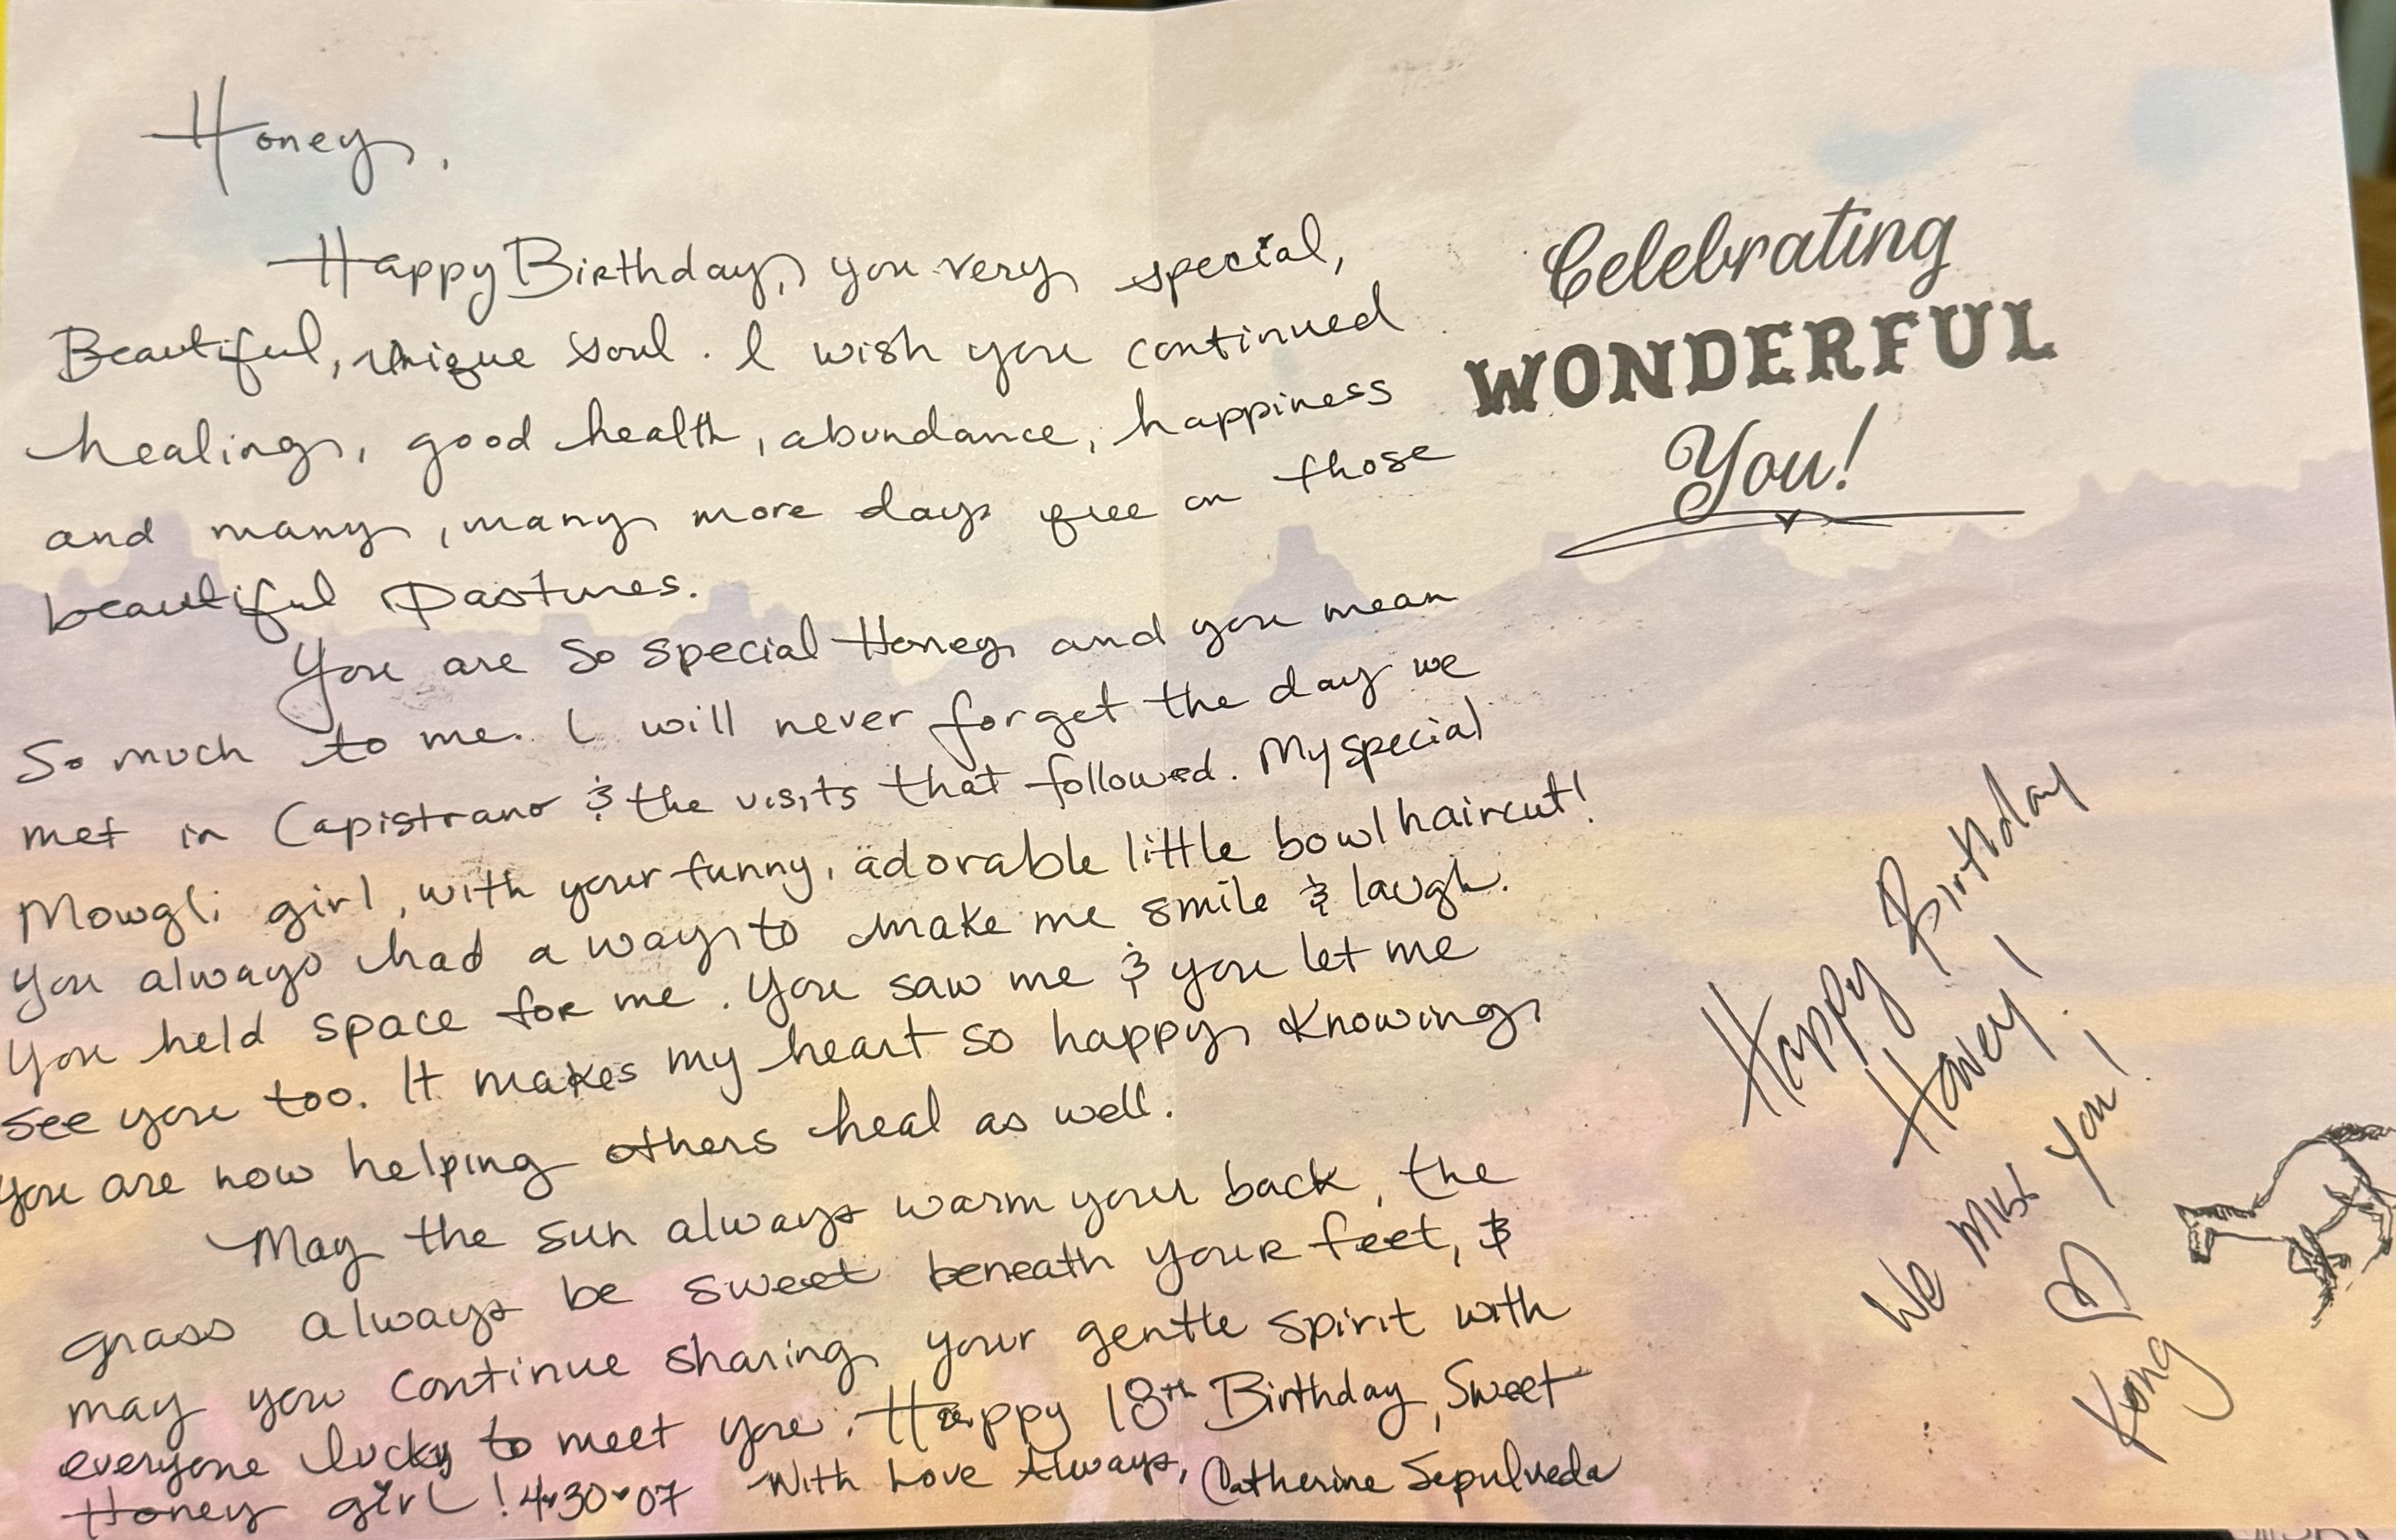 Honey,
Happy Birthday, you very special,
Beautiful, unique soul. I wish you continued
healing, good health, abundance, happiness
and many, many more days free on those
beautiful Pastures.
You are so special Honey and you mean
so much to me. I will never forget the day we
met in Capistrano & the visits that followed. My special
Mowgli girl, with your funny, adorable little bowl haircut!
You always had a way to make me smile & laugh.
You held space for me. You saw me & you let me
see you too. It makes my heart so happy knowing
you are now helping others heal as well.
May the sun always warm your back, the
grass always be sweet beneath your feet, &
may you continue sharing your gentle spirit with
everyone lucky to meet you. Happy 18th Birthday, Sweet
Honey girl! 4♥30♥07 With Love Always, Catherine Sepulveda
Celebrating
WONDERFUL
You!
Happy Birthday
Honey!
We Miss You!
♡
Kong